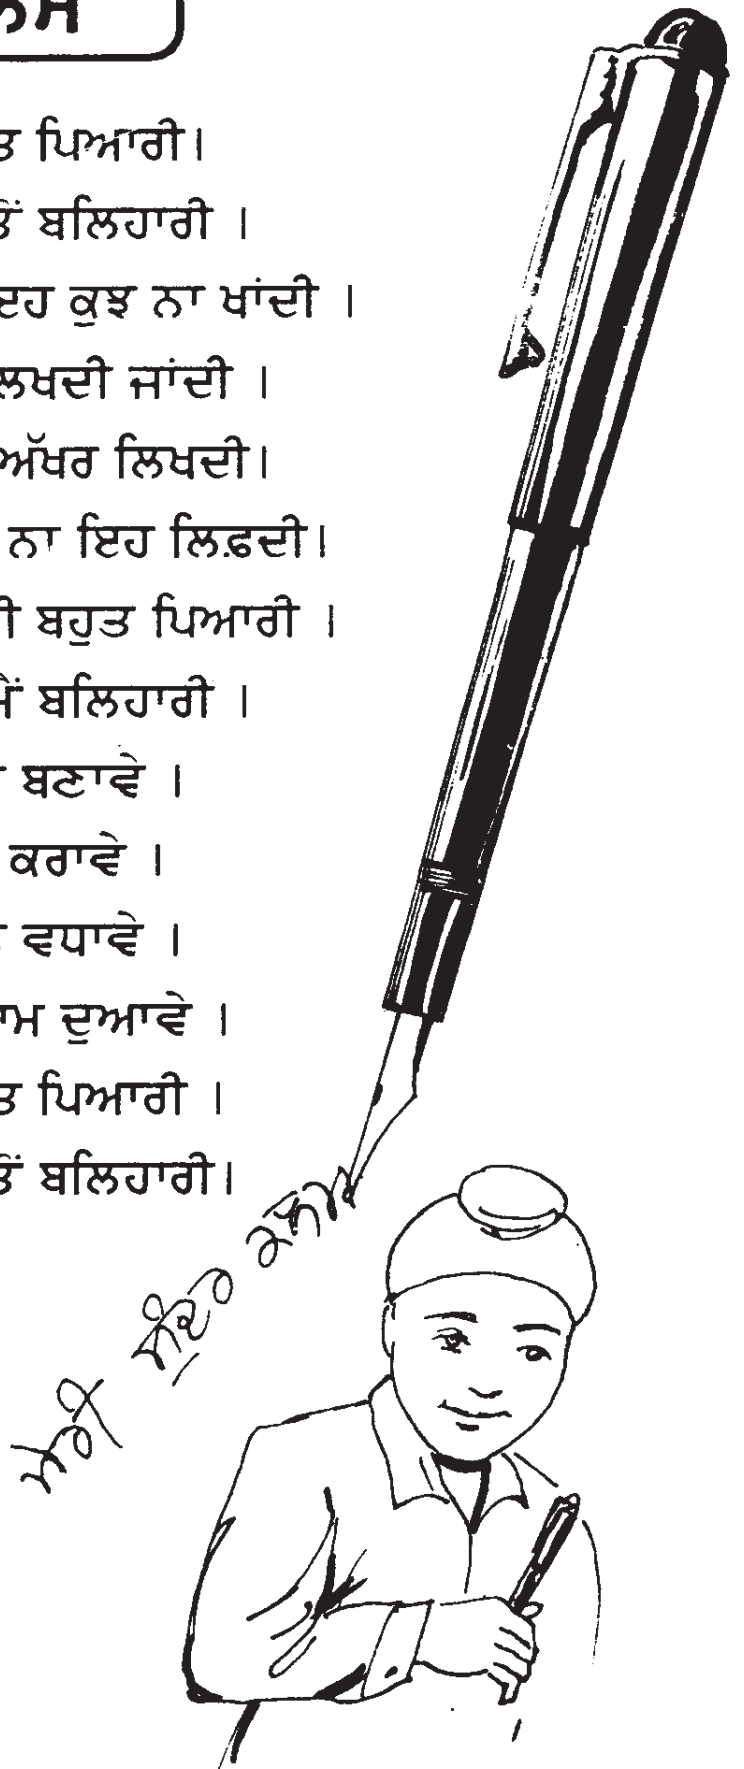 ਪਿਆਰੀ।
ਬਲਿਹਾਰੀ ।
ਇਹ ਕੁਝ ਨਾ ਖਾਂਦੀ ।
ਲਖਦੀ ਜਾਂਦੀ ।
ਅੱਖਰ ਲਿਖਦੀ।
ਨਾ ਇਹ ਲਿਫ਼ਦੀ।
ਬਹੁਤ ਪਿਆਰੀ ।
ਮੈਂ ਬਲਿਹਾਰੀ ।
ਬਣਾਵੇ ।
ਕਰਾਵੇ ।
ਵਧਾਵੇ ।
ਾਮ ਦੁਆਵੇ ।
ਤ ਪਿਆਰੀ ।
ਬਲਿਹਾਰੀ।
ਮੇਰੀ ਸੁੰਦਰ ਕਲਮ